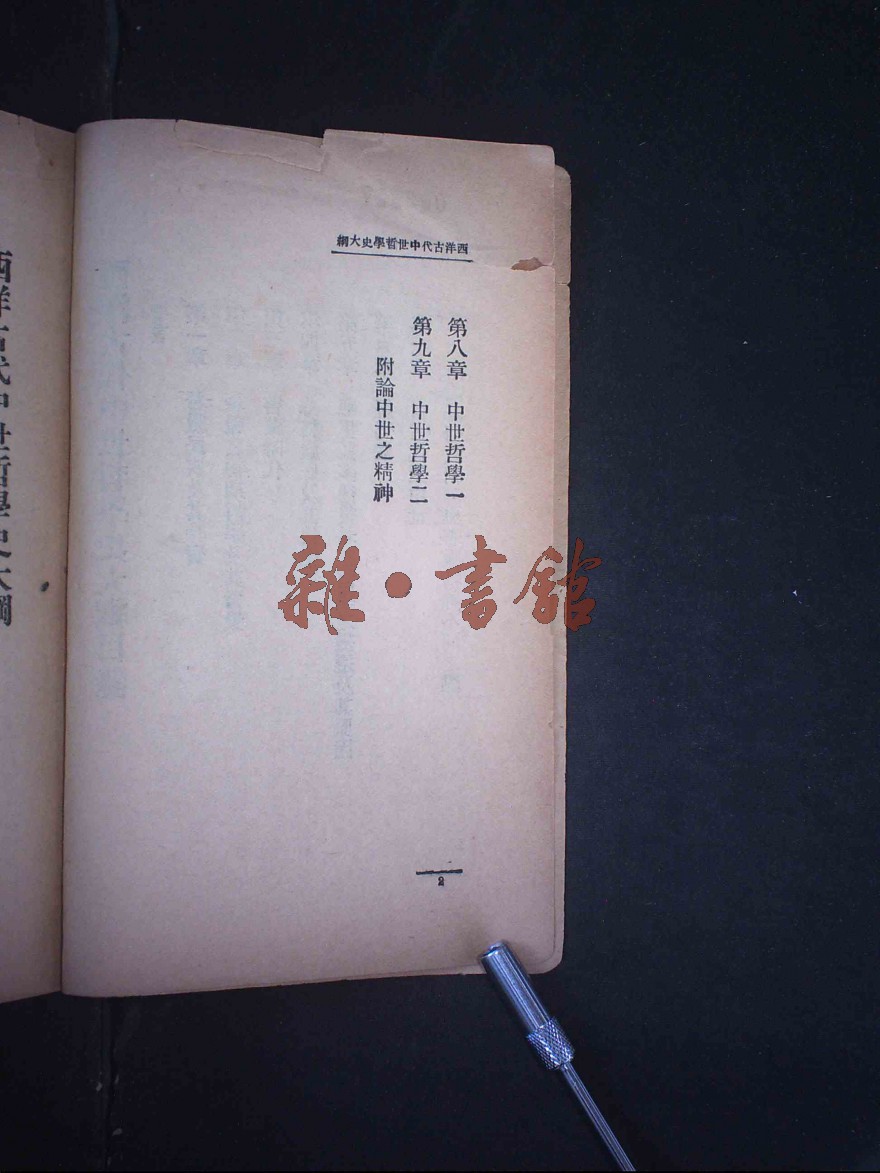 西洋古代中世哲學史大綱
第八章　中世哲學一
第九章　中世哲學二
附論中世之精神
2
雜•書館
西洋古代中世哲學史大綱